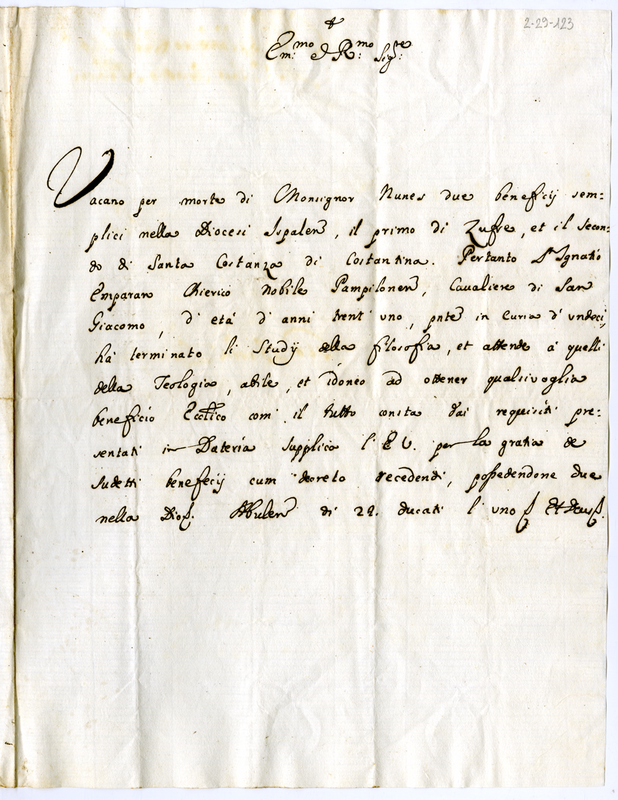 2-29-123
Em:mo e R:mo Sig:re
Vacano per morte di Monsignor Nunes due beneficij sem=
plici nella Diocesi Ispalen, il primo di Zufre, et il secon=
do di Santa Costanza di Costantina. Pertanto D. Ignatio
Emparan Chierico Nobile Pampilonen, Cavaliere di San
Giacomo, d'età d'anni trent'uno, pnte in Curia d'undeci,
hà terminato li Studij della filosofia, et attende à quelli
della Teologia, abile, et idoneo ad ottener qualsivoglia
beneficio Ecctico com'il tutto consta dai requisiti pre=
sentati in Dateria supplica l'E.V. per la gratia de
sudetti beneficij cum decreto recedendi, possedendone due
nella Dioc. Abulen di 24. ducati l'uno